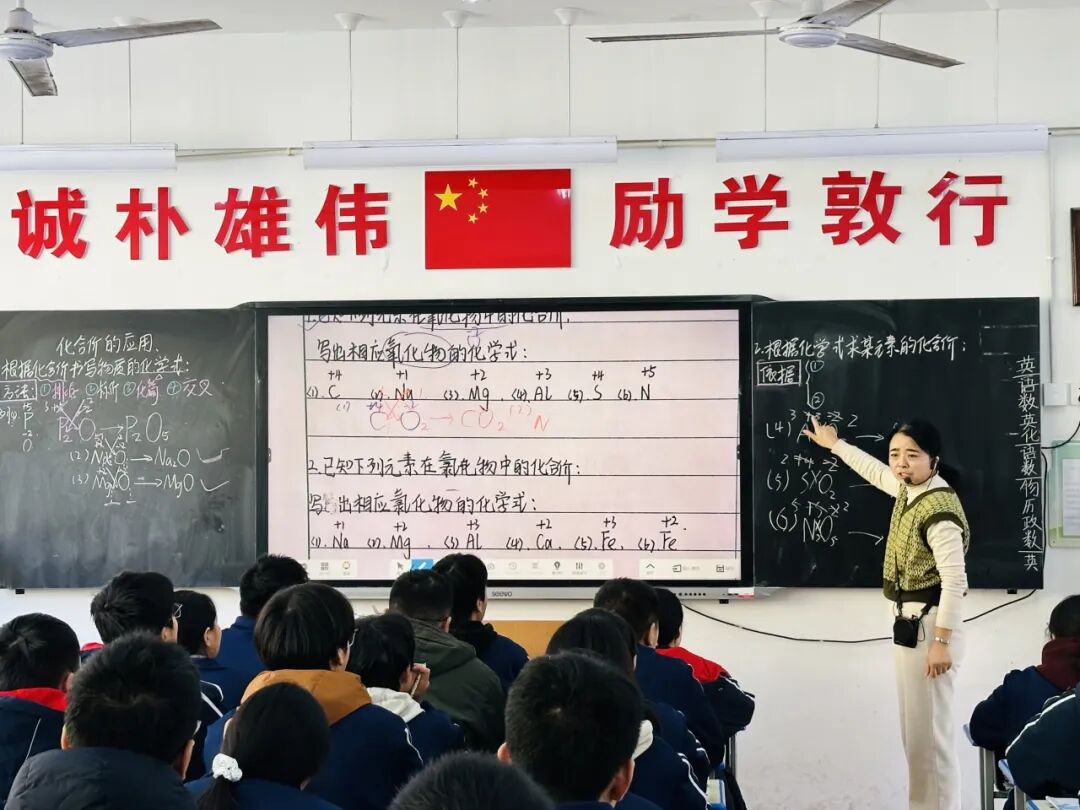 诚朴雄伟 励学敦行
化合价的应用、
根据化合价书写物质的化学式:
方法: ①排序 ②标价 ③化简 ④交叉
P₂O₅→P₂O₅
(2) NaO→Na₂O
(3) MgO→MgO
写出相应氧化物的化学式:
+4 +1 +2 +3 +4 +5
(1). C (2). Na (3). Mg. (4). Al (5). S (6). N
(1) C O₂→CO₂ (2) N
2.已知下列元素在氯化物中的化合价:
写出相应氯化物的化学式:
+1 +2 +3 +2 +3 +2
(1). Na (2). Mg. (3) Al (4). Ca. (5). Fe. (6). Fe
seewo
2.根据化学式求某元素的化合价:
依据
①
②
(4)
(5) SO₂→
(6) N₂O₅→
英
语
数
英
化
语
数
物
历
政
数
英